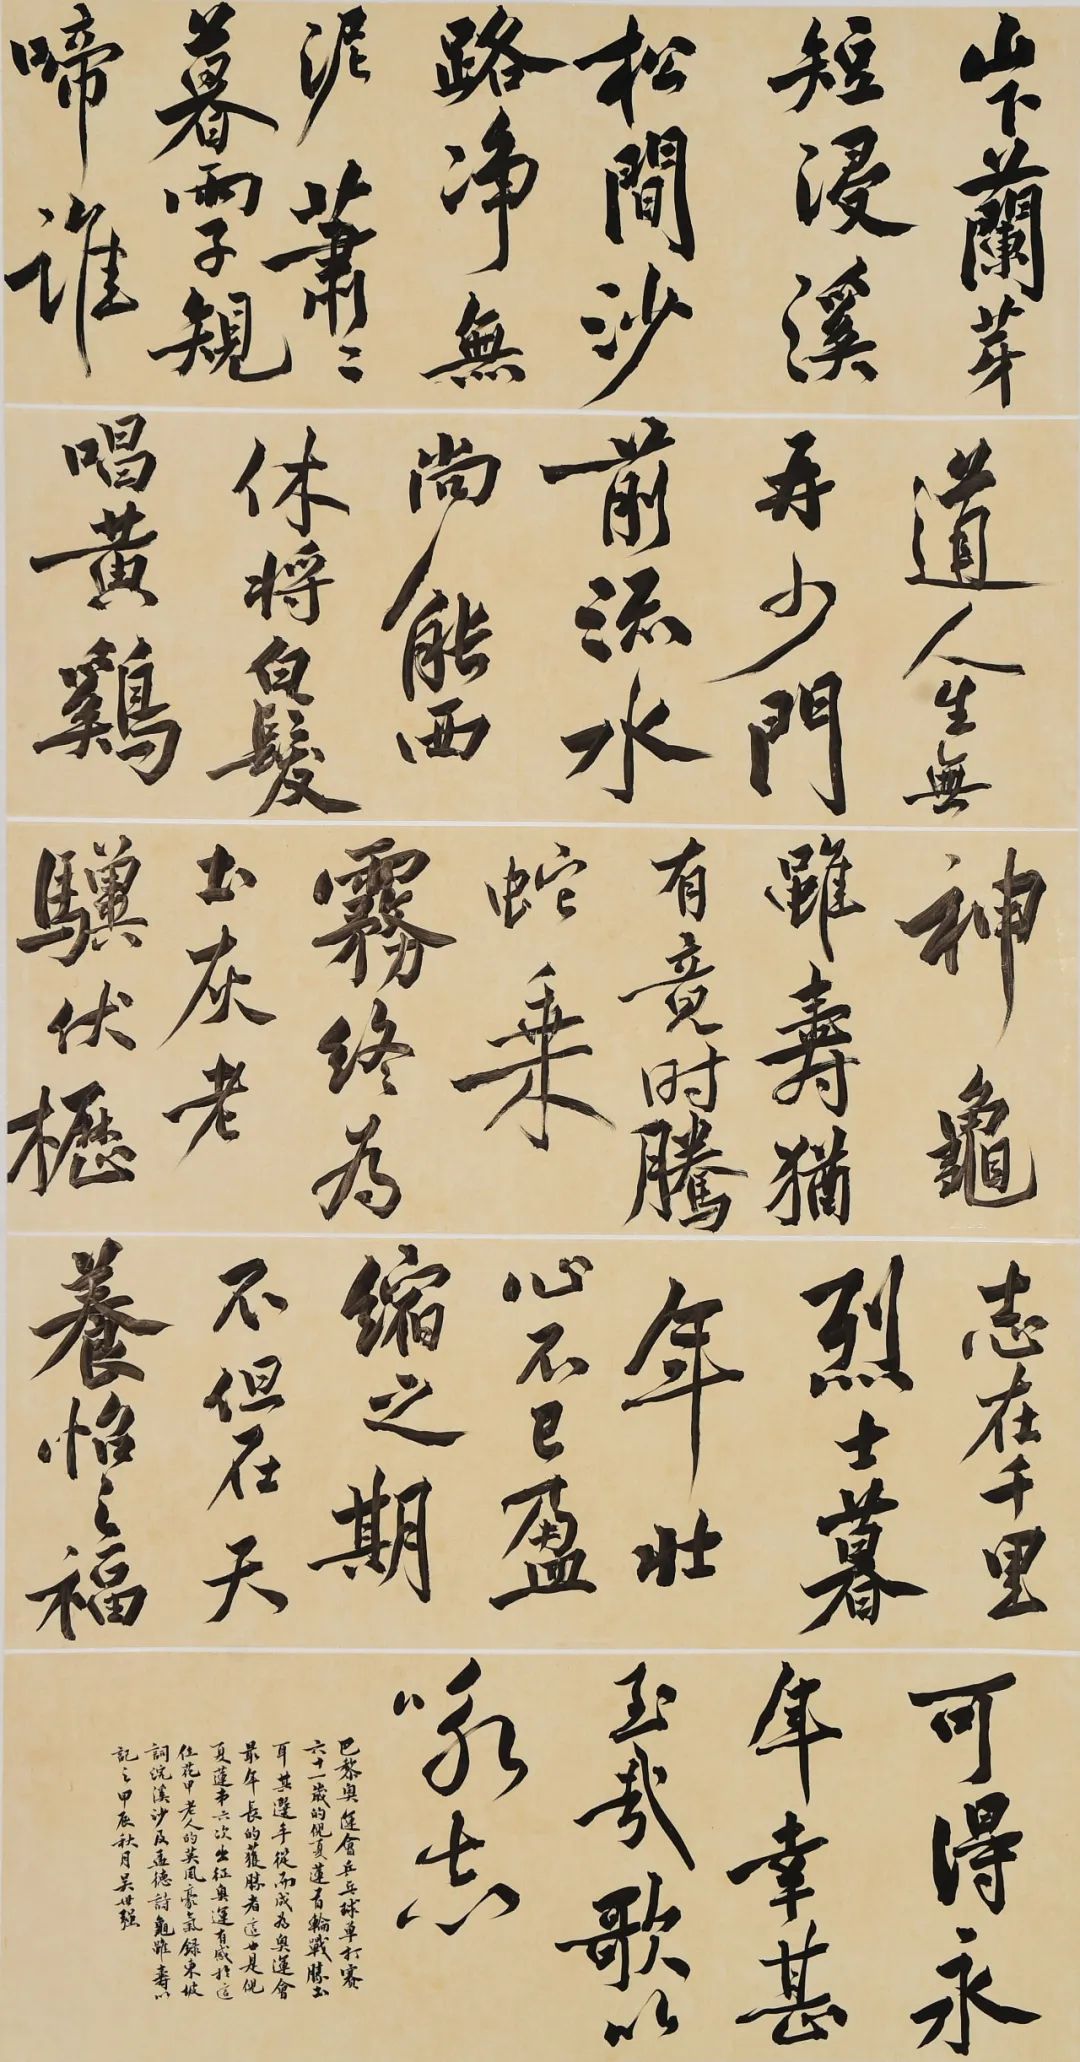 山下蘭芽
短浸溪
松間沙
路净無
泥蕭〻
暮雨子規
啼誰
道人生無
再少門
前流水
尚能西
休將白髮
唱黃鷄
神龜
雖壽猶
有竟时騰
蛇乘
霧終為
土灰老
驥伏櫪
志在千里
烈士暮
年壯
心不已盈
縮之期
不但在天
養怡之福
可得永
年幸甚
至哉歌以
咏志
巴黎奧運會乒乓球單打賽
六十一歲的倪夏蓮首輪戰勝土
耳其選手從而成為奧運會
最年長的獲勝者這也是倪
夏蓮第六次出征奧運有感於這
位花甲老人的英風豪氣錄東坡
詞浣溪沙及孟德詩龜雖壽以
記之甲辰秋月吴世强